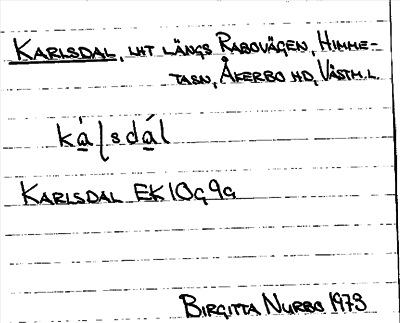 KARLSDAL, LHT LÄNGS RABOVÄGEN, HIMME-
TASN, ÅKERBO HD, VÄSTM.L.
kà̱ʃsdá̱l
KARLSDAL EK10g9a
BIRGITTA NURBO 1973